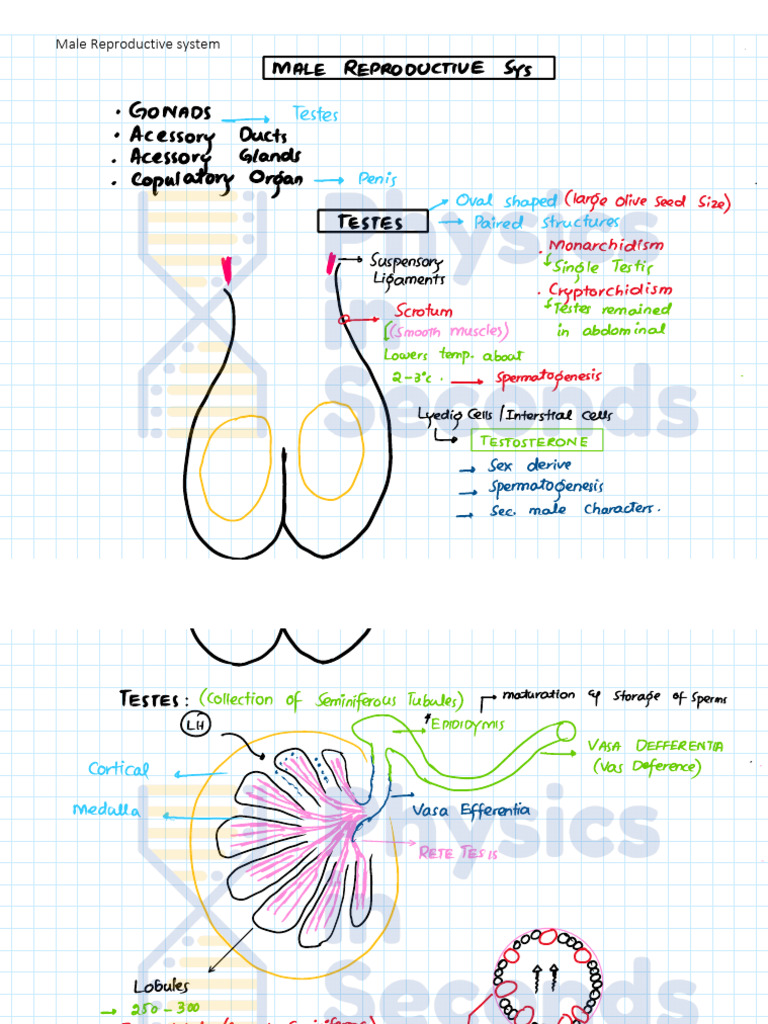 Male Reproductive system
MALE REPRODUCTIVE SYS
• GONADS → Testes
• Acessory Ducts
• Acessory Glands
• Copulatory Organ → Penis
TESTES
→ Oval shaped (large olive seed Size)
→ Paired structures
• Monarchidism
↳ Single Testis
• Cryptorchidism
↳ Testes remained
in abdominal
→ Suspensory
Ligaments
→ Scrotum
(Smooth muscles)
Lowers temp. about
2-3°c. → Spermatogenesis
Lyedig Cells / Interstial cells
↳ TESTOSTERONE
→ Sex derive
→ Spermatogenesis
→ Sec. male characters.
Physics
in
Seconds
TESTES: (Collection of Seminiferous Tubules)
→ maturation & storage of sperms
LH
EPIDIDYMIS
VASA DEFFERENTIA
(Vas Deference)
Cortical
Medulla
Vasa Efferentia
RETE TESIS
Lobules
→ 250 - 300
Physics
in
Seconds